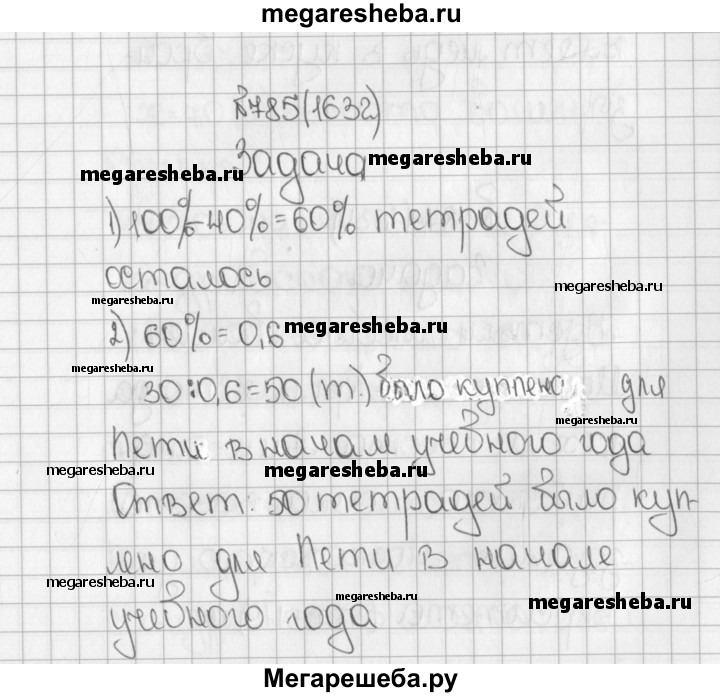 megaresheba.ru
№785(1632)
Задача megaresheba.ru
megaresheba.ru
1) 100%-40%=60% тетрадей
осталось megaresheba.ru
megaresheba.ru
2) 60%=0,6 megaresheba.ru
megaresheba.ru
30:0,6=50(т.) было куплено для
megaresheba.ru
Пети в начал учебного года
megaresheba.ru megaresheba.ru
Ответ: 50 тетрадей было куп-
лено для Пети в начале
megaresheba.ru megaresheba.ru megaresheba.ru
учебного года
Мегарешеба.ру